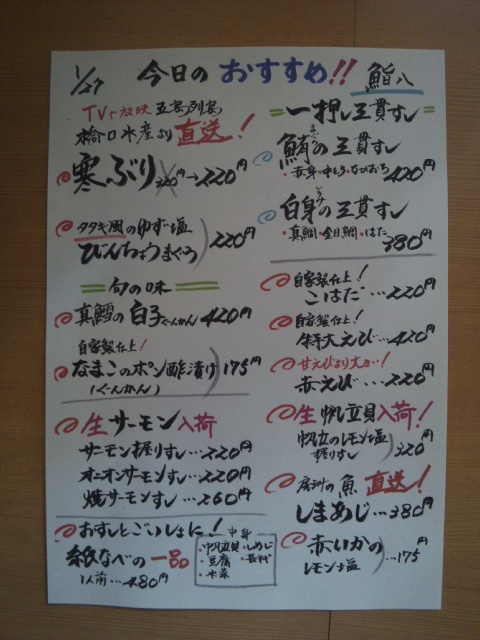 1/27 今日のおすすめ!! 鮨八
TVで放映 五島列島
橋口水産より直送!
寒ぶり →220円
タタキ風のゆず塩
びんちょうまぐろ 220円
旬の味
真鱈の白子ぐんかん 420円
自家製仕上!
なまこのポン酢漬け 175円
(ぐんかん)
生サーモン入荷
サーモン握りすし…220円
オニオンサーモンすし…220円
焼サーモンすし…260円
おすしとごいっしょに!
紙なべの一品
1人前…480円
中身
・帆立貝・しめじ
・豆腐・長ネギ
・水菜
一押し三貫すし
鮪の三貫すし
まぐろ
・赤身・中とろ・ねぎおち 420円
白身の三貫すし
しろみ
・真鯛・金目鯛・はた
380円
自家製仕上!
こはだ…220円
自家製仕上!
特大えび…420円
甘えびより大きい!
赤えび…220円
生帆立貝入荷!
帆立のレモン塩
握りすし 320円
房州の魚 直送!
しまあじ…380円
赤いかの
レモン塩 …175円